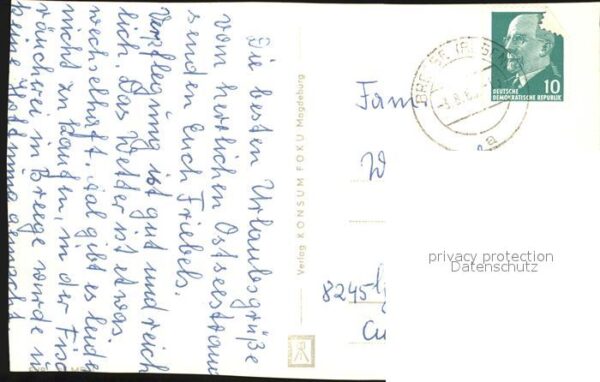 Die besten Urlaubsgrüße
vom herrlichen Ostseestrand
senden Euch Friebels.
Verpflegung ist gut und reich
lich. Das Wetter ist etwas
wechselhaft. Aal gibt es leider
nicht zu kaufen, in der Fisch
räucherei in Breege wurde u
keine Hoffnung gemacht.
Verlag KONSUM FOKU Magdeburg
Fam
W
8245 
BREEGE (RÜGEN)
10
DEUTSCHE
DEMOKRATISCHE REPUBLIK
a
privacy protection
Datenschutz